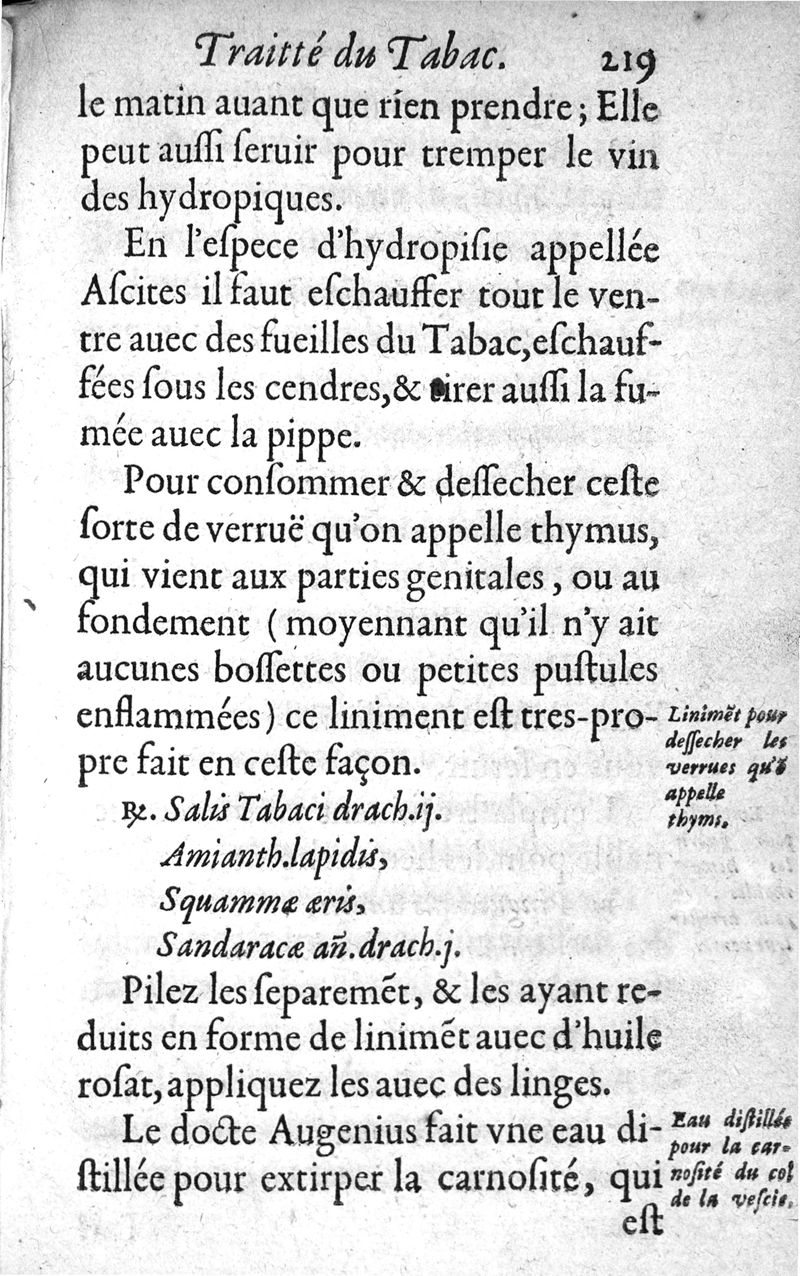 Traitté du Tabac. 219
le matin auant que rien prendre ; Elle
peut auſſi ſeruir pour tremper le vin
des hydropiques.
En l'eſpece d'hydropiſie appellée
Aſcites il faut eſchauffer tout le ven-
tre auec des fueilles du Tabac, eſchauf-
fées ſous les cendres, & tirer auſſi la fu-
mée auec la pippe.
Pour conſommer & deſſecher ceſte
ſorte de verruë qu'on appelle thymus,
qui vient aux parties genitales, ou au
fondement ( moyennant qu'il n'y ait
aucunes boſſettes ou petites puſtules
enflammées ) ce liniment eſt tres-pro-
pre fait en ceſte façon.
Linimẽt pour
deſſecher les
verrues qu'õ
appelle
thyms.
℞. Salis Tabaci drach.ij.
Amianth.lapidis,
Squammæ æris,
Sandaracæ añ.drach.j.
Pilez les ſeparemẽt, & les ayant re-
duits en forme de linimẽt auec d'huile
roſat, appliquez les auec des linges.
Le docte Augenius fait vne eau di-
ſtillée pour extirper la carnoſité, qui
Eau diſtillée
pour la car-
noſité du col
de la veſcie.
eſt